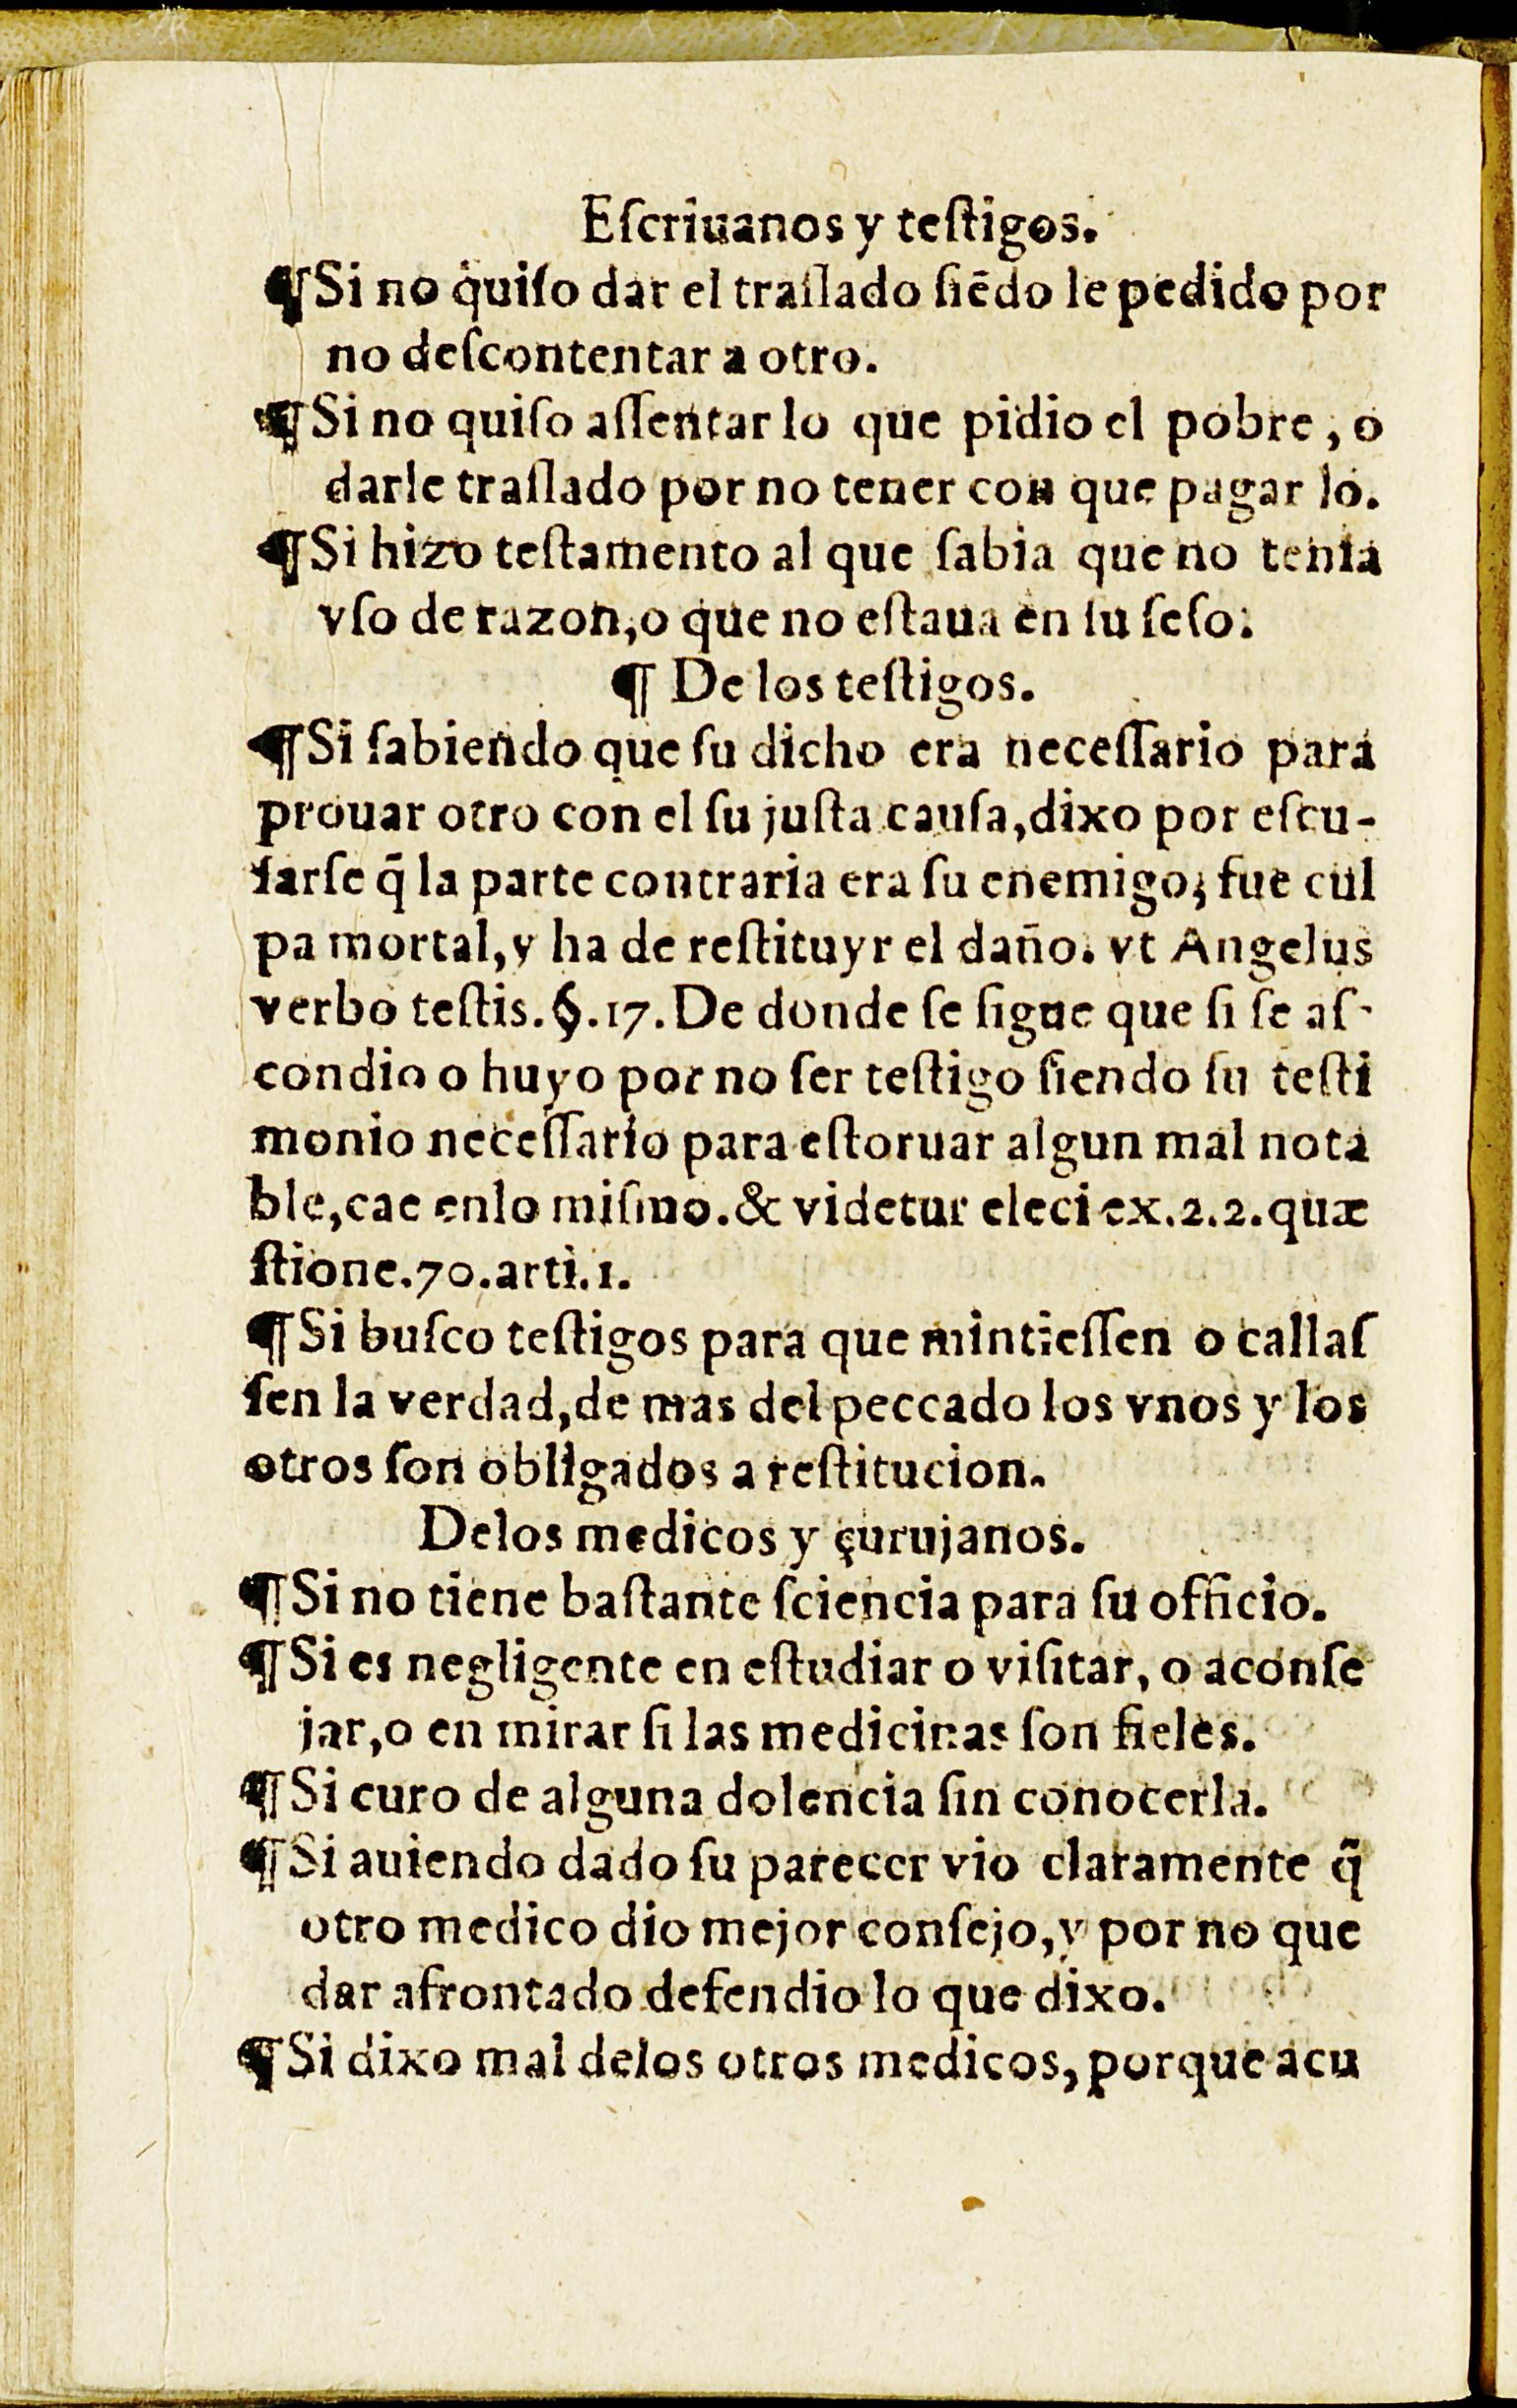 Eſcriuanos y teſtigos.
¶Si no q̇uiſo dar el traſlado ſiēdo le pedido por
no deſcontentar a otro.
¶Si no quiſo aſſentar lo que pidio el pobre, o
darle traſlado por no tener con que pagar lo.
¶Si hizo teſtamento al que ſabia que no tenia
vſo de razon, o que no eſtaua en ſu ſeſo.
¶ De los teſtigos.
¶Si ſabiendo que ſu dicho era neceſſario para
prouar otro con el ſu juſta cauſa, dixo por eſcu-
ſarſe q̄ la parte contraria era ſu enemigo, fue cul
pa mortal, y ha de reſtituyr el daño. vt Angelus
verbo teſtis.§.17. De donde ſe ſigue que ſi ſe aſ-
condio o huyo por no ſer teſtigo ſiendo ſu teſti
monio neceſſario para eſtoruar algun mal nota
ble, cae enlo miſmo. & videtur eleci ex.2.2.quæ
ſtione.70.arti.1.
¶Si buſco teſtigos para que mintieſſen o callaſ
ſen la verdad, de mas del peccado los vnos y los
otros ſon obligados a reſtitucion.
Delos medicos y çurujanos.
¶Si no tiene baſtante ſciencia para ſu officio.
¶Si es negligente en eſtudiar o viſitar, o aconſe
jar, o en mirar ſi las medicinas ſon fieles.
¶Si curo de alguna dolencia ſin conocerla.
¶Si auiendo dado ſu parecer vio claramente q̄
otro medico dio mejor conſejo, y por no que
dar afrontado defendio lo que dixo.
¶Si dixo mal delos otros medicos, porque acu